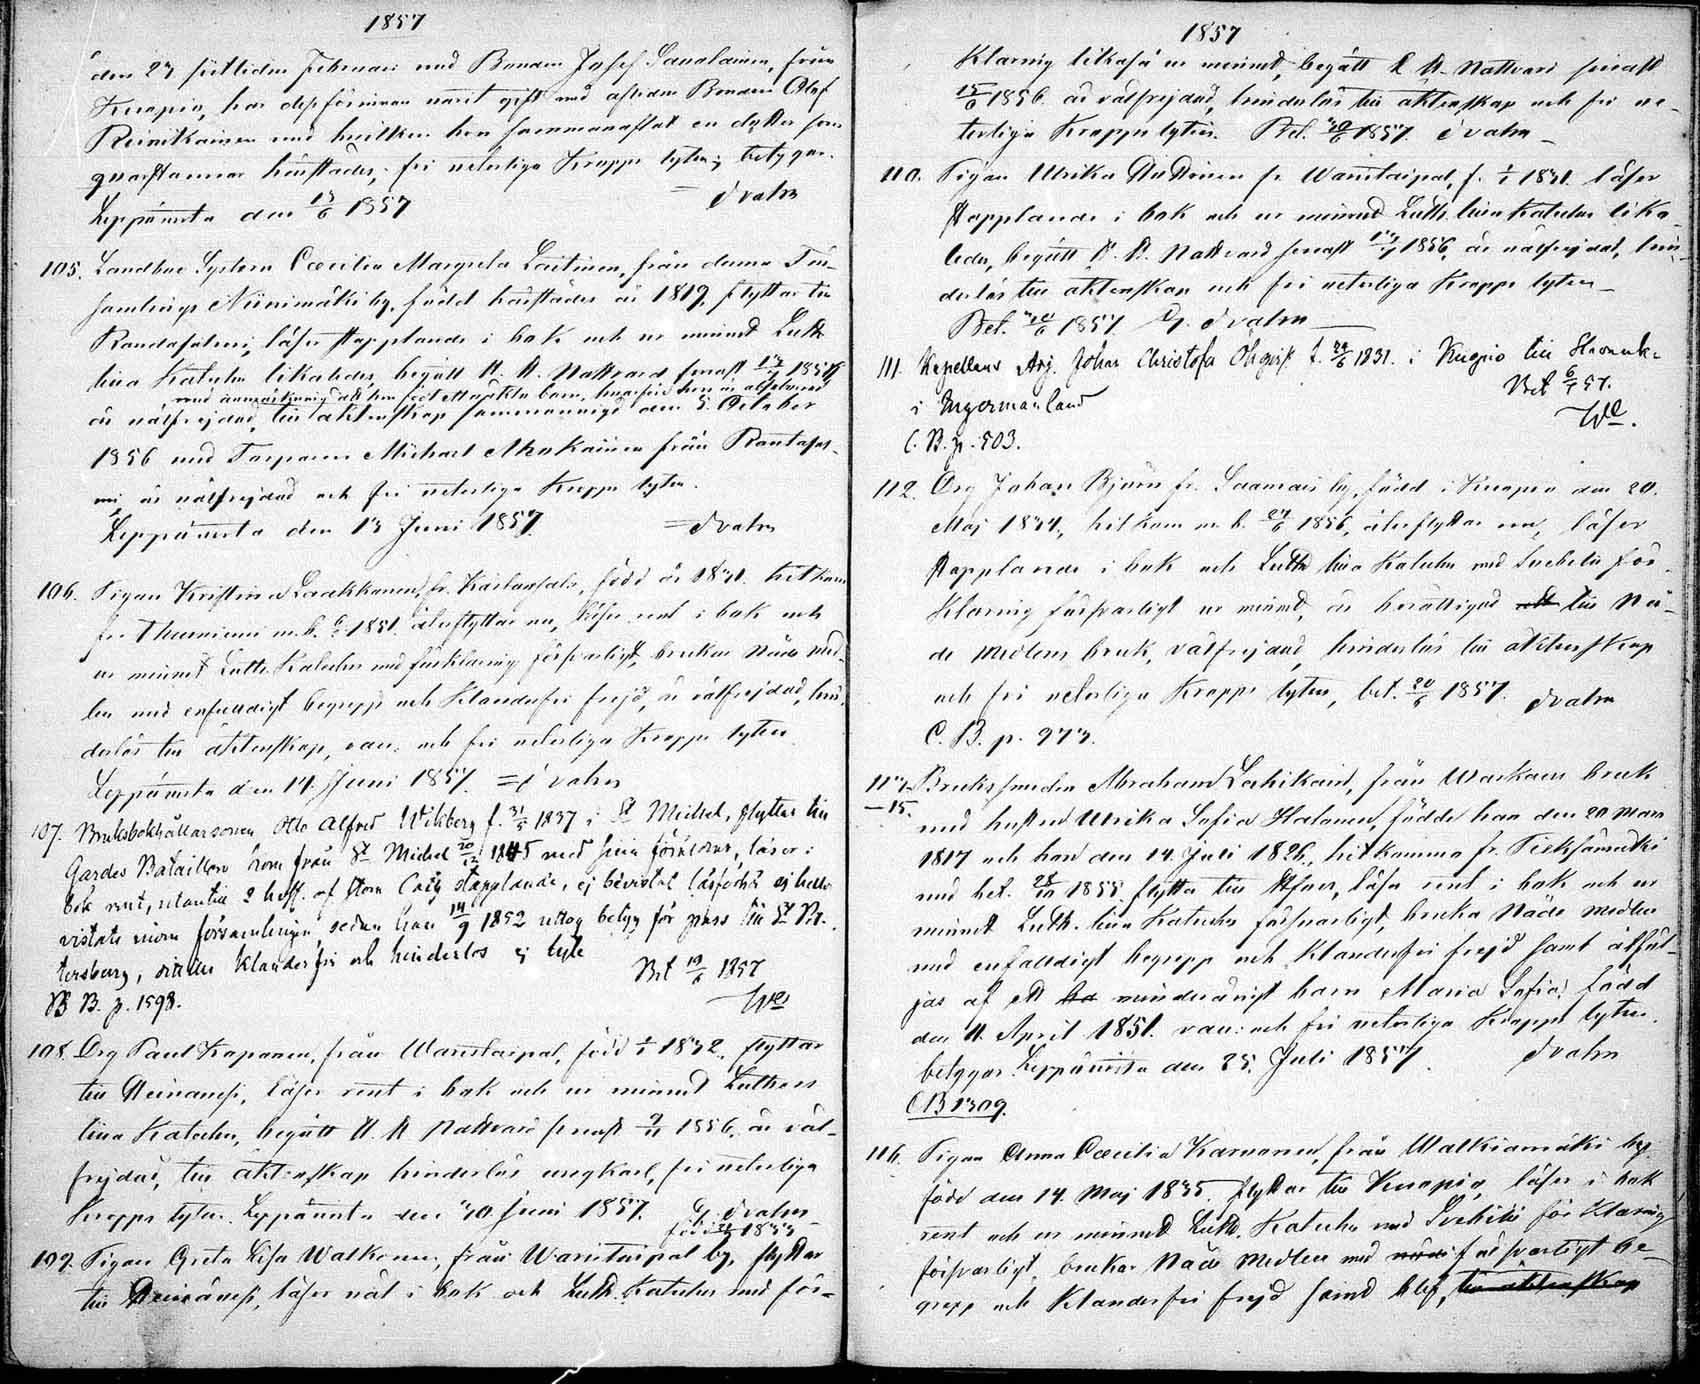 1857
den 27 sistlidne Februari med Bonden Josef Savolainen, från
Kuopio, har dessförinnan varit gift med aflidne Bonden Olof
Reinikainen med hvilken hon sammanaflat en dotter som
qvarstannar härstädes, fri veterliga Kropps lyten; betygar.
Leppävirta den 13/6 1857 = Dvahn
105. Landbon Systern Cæcilia Margreta Laitinen, från denna För-
samlings Niinimäki by, född härstädes år 1819, flyttar till
Randasalmi, läser stapplande i bok och ur minnet Luth.
lilla Kateches likaledes, begått H. H. Nattvard senast 1857
med anmärkning att hon födt oäkta barn, hvarföre hon är absolverad
är välfrejdad, till äktenskap sammanvigd den 5 October
1856 med Torparen Michael Mukainen från Rantasal-
mi, är välfrejdad och fri veterliga Kropps lyten.
Leppävirta den 13 Juni 1857. = Dvahn
106. Pigan Kristina Laakkonen, fr. Kärlangsalo, född år 1831. hitkom
fr. Thusniemi m. b. 1851. återflyttar nu, läser rent i bok och
ur minnet Luth. Kateches med förklaring försvarligt, brukar Nåde med-
len med enfaldigt begrepp och Klanderfri frejd, är välfrejdad, hin-
derlös till äktenskap, vacc. och fri veterliga Kropps lyten
Leppävirta den 14. Juni 1857. = Dvahn
107. Bruksbokhållarsonen Otto Alfred Wikberg f. 31/5 1837 i St Michel, flyttar till
Gardes Bataillon kom från St Michel 20/12 1845 med sina föräldrar, läser i
bok rent, utantill 2 hoff. af stora Catg stapplande, ej bevistat läsförhör ej heller
vistats inom församlingen, sedan han 14/9 1852 uttog betyg för pass till St Pe-
tersburg, sitter Klanderfri och hinderlös ej lyte
Bet 19/6 1857
B B. p. 1598. We
108. Drg Paul Kaponen, från Waristaipal, född 1832, flyttar
till Heinävesi, läser rent i bok och ur minnet Luthers
lilla Kateches, begått H. H. Nattvard senast 9/11 1856, är väl-
frejdad, till äktenskap hinderlös ungkarl, fri veterliga
Kropps lyten. Leppävirta den 30 Juni 1857. G. Dvahn
född 1833
109. Pigan Greta Lisa Walkonen, från Waristaipal by, flyttar
till Heinävesi, läser väl i bok och Luth. Kateches med för-
1857
klaring likaså ur minnet, begått H. H. Nattvard senast
15/6 1856 är välfrejdad, hinderlös till äktenskap och fri ve-
terliga Kropps lyten. Bet. 30/6 1857. Dvahn
110. Pigan Ulrika fr. Waristaipal, f. 1831. läser
stapplande i bok och ur minnet Luth. lilla Kateches lika-
ledes, begått H. H. Nattvard senast 1856, är välfrejdad, hin-
derlös till äktenskap och fri veterliga Kropps lyten
Bet. 30/6 1857. G. Dvahn
111. Kapellans Arj. Johan Christofer Öhqvist f. 24/6 1831. i Kuopio till
i Ingermanland Bet 6/7 57.
C. B. p. 503. We.
112. Drg Johan Björn fr. Saamais by, född i Kuopio den 20.
Maj 1834, hitkom m. b. 24/6 1856, återflyttar nu, läser
stapplande i bok och Luth. lilla Kateches med Svebelii för-
klaring försvarligt ur minnet, är berättigad att till Nå-
de medlens bruk, välfrejdad, hinderlös till äktenskap
och fri veterliga Kropps lyten, bet. 20/6 1857. Dvahn
C. B. p. 973.
113–15. Brukssmeden Abraham Lankikain, från Warkaus bruk
med hustru Ulrika Sofia Halonen, födde han den 20 Mars
1817 och hon den 14. Juli 1826, hitkomna fr. Pieksämäki
med bet. 28/10 1855 flytta till, läsa rent i bok och ur
minnet Luth. lilla Kateches försvarligt, bruka Nåde medlen
med enfaldigt begrepp och Klanderfri frejd samt åtföl-
jas af ett minderårigt barn Maria Sofia, född
den 11. April 1851. vacc. och fri veterliga Kropps lyten.
betygar Leppävirta den 25. Juli 1857. Dvahn
CB 1309.
116. Pigan Anna Cæcilia Karvonen, från Walkiamäki by
född den 14. Maj 1835, flyttar till Kuopio, läser i bok
rent och ur minnet Luth. Kateches med Svebilii förklaring
försvarligt, brukar Nåde medlen med försvarligt be-
grepp och Klanderfri frejd samt blef, till äktenskap